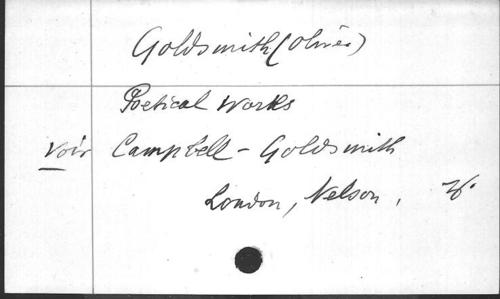 Goldsmith (Oliver)
Poetical Works
Voir Campbell - Goldsmith
London, Nelson,